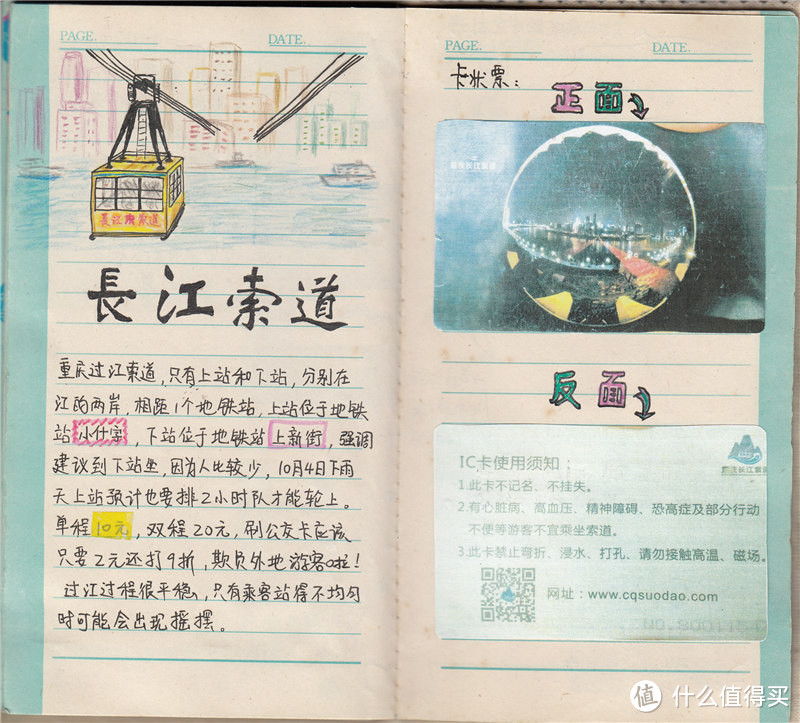 PAGE.
DATE.
長江索道
長江索道
重庆过江索道,只有上站和下站,分别在
江的两岸,相距1个地铁站,上站位于地铁
站小什字,下站位于地铁站上新街,强调
建议到下站坐,因为人比较少,10月4日下雨
天上站预计也要排2小时队才能轮上。
单程10元,双程20元,刷公交卡应该
只要2元还打9折,欺负外地游客啦!
过江过程很平稳,只有乘客站得不均匀
时可能会出现摇摆。
PAGE.
DATE.
卡状票:
正面
重庆长江索道
反面
重庆长江索道
IC卡使用须知:
1.此卡不记名、不挂失。
2.有心脏病、高血压、精神障碍、恐高症及部分行动
不便等游客不宜乘坐索道。
3.此卡禁止弯折、浸水、打孔、请勿接触高温、磁场。
网址:www.cqsuodao.com
值 什么值得买